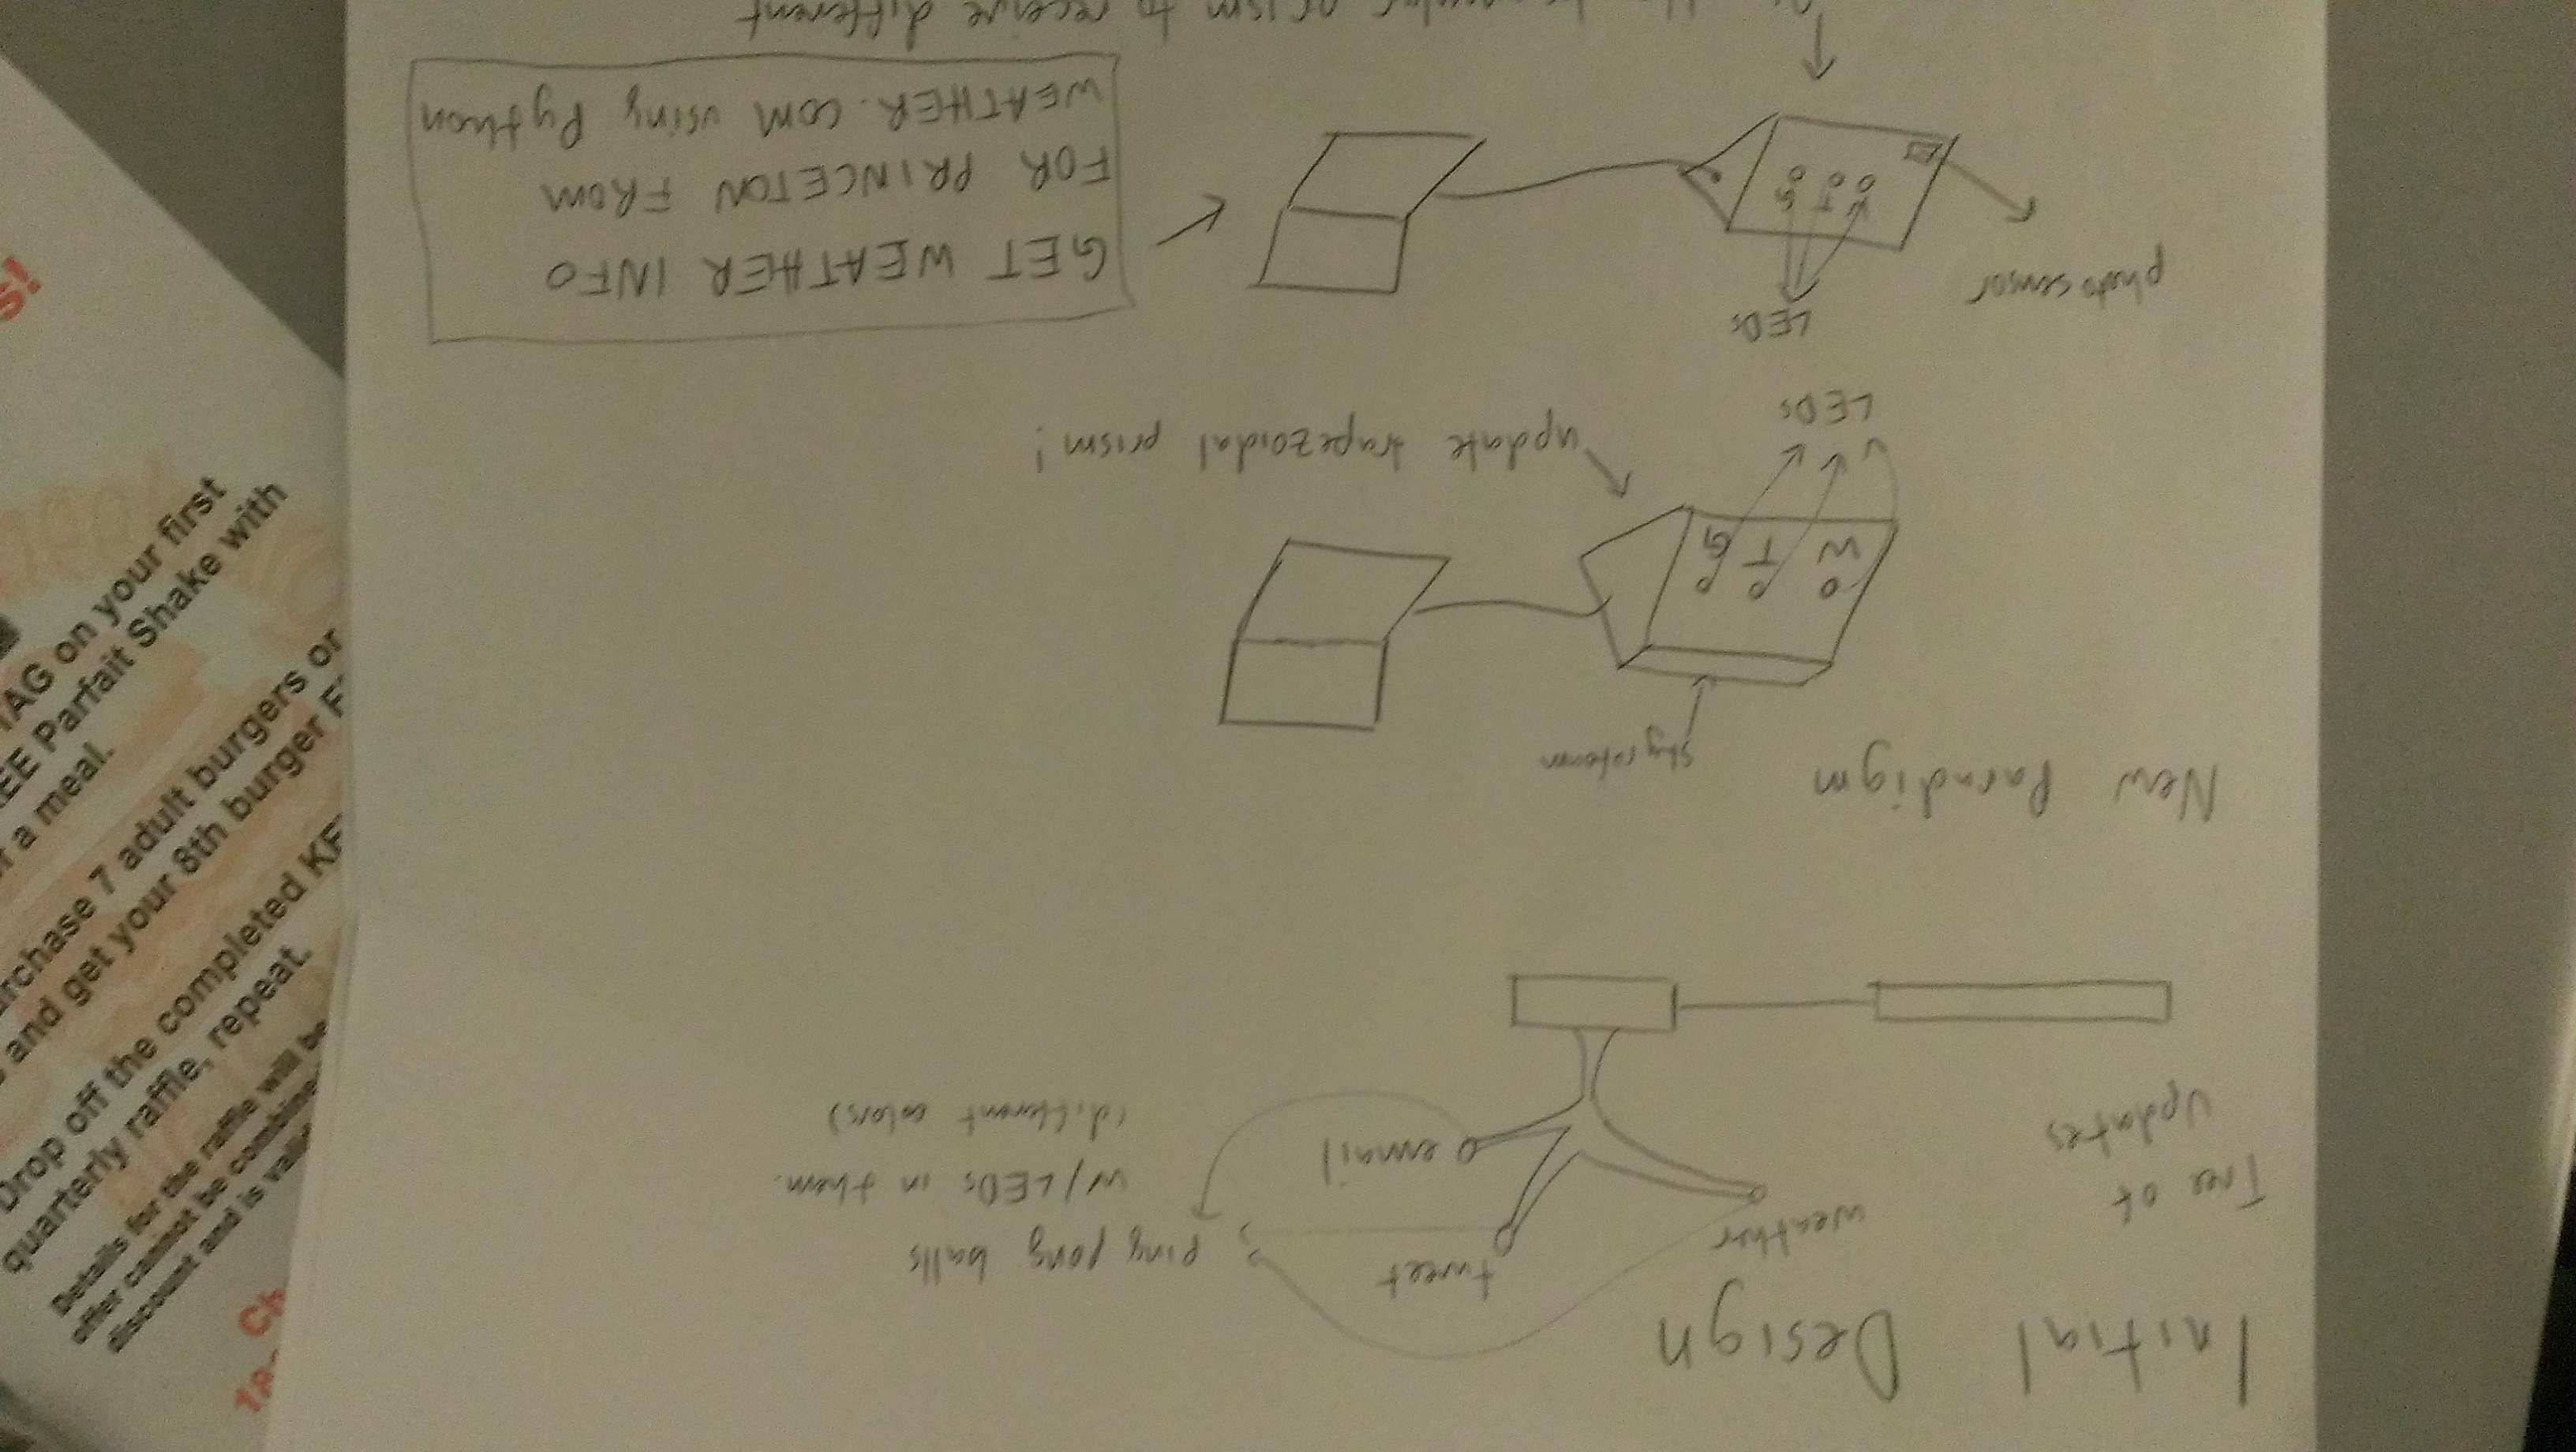 Initial Design
Tree of
Updates
weather
tweet
email
ping pong balls
w/LEDs in them.
(different colors)
New Paradigm
styrofoam
W T G
LEDs
update trapezoidal prism!
LEDs
photosensor
W T G
GET WEATHER INFO
FOR PRINCETON FROM
WEATHER.COM using Python
prism to receive different
s!
on your first
Parfait Shake with
a meal.
rchase 7 adult burgers or
and get your 8th burger F
Drop off the completed KF
quarterly raffle, repeat.
Details for the raffle will be
offer cannot be combine
discount and is vali
Ch
18